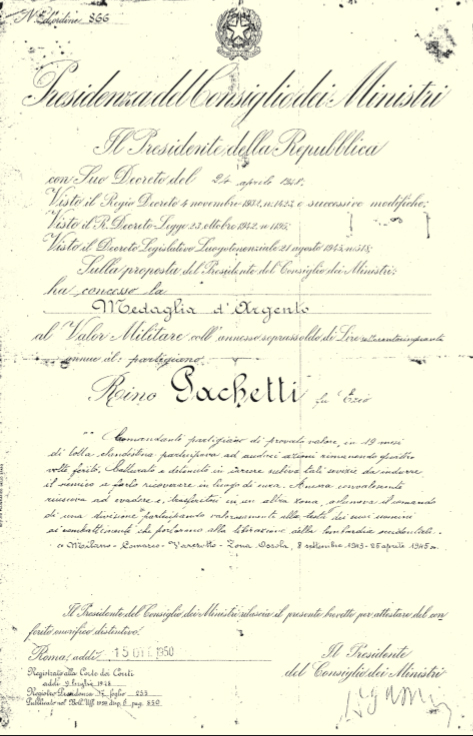 N. d'ordine 866
Presidenza del Consiglio dei Ministri
Il Presidente della Repubblica
con Suo Decreto del 24 aprile 1948;
Visto il Regio Decreto 4 novembre 1932, n. 1423 e successive modifiche;
Visto il R. Decreto Legge 23 ottobre 1942, n. 1195;
Visto il Decreto Legislativo Luogotenenziale 21 agosto 1945, n. 518;
Sulla proposta del Presidente del Consiglio dei Ministri:
ha concesso la
Medaglia d'Argento
al Valor Militare coll'annesso soprassoldo di Lire
annue il: partigiano
Rino Pachetti fu Ezio
" Comandante partigiano di provato valore, in 19 mesi
di lotta clandestina partecipava ad audaci azioni rimanendo quattro
volte ferito. Catturato e detenuto in carcere subiva tali sevizie da indurre
il nemico a farlo ricoverare in luogo di cura. Ancora convalescente
riusciva ad evadere e, trasferitosi in un'altra zona, assumeva il comando
di una divisione partecipando valorosamente alla testa dei suoi uomini
ai combattimenti che portarono alla liberazione della Lombardia occidentale.
Milano - - - Zona Ossola, 8 settembre 1943 - 25 aprile 1945 ".
Il Presidente del Consiglio dei Ministri rilascia il presente brevetto per attestare del con-
ferito onorifico distintivo.
Roma, addì 15 DIC 1950
Il Presidente
del Consiglio dei Ministri
Registrato alla Corte dei Conti
addì 9 luglio 1948
Registro Presidenza N° foglio
Pubblicato nel Boll. Uff. disp. pag. 850